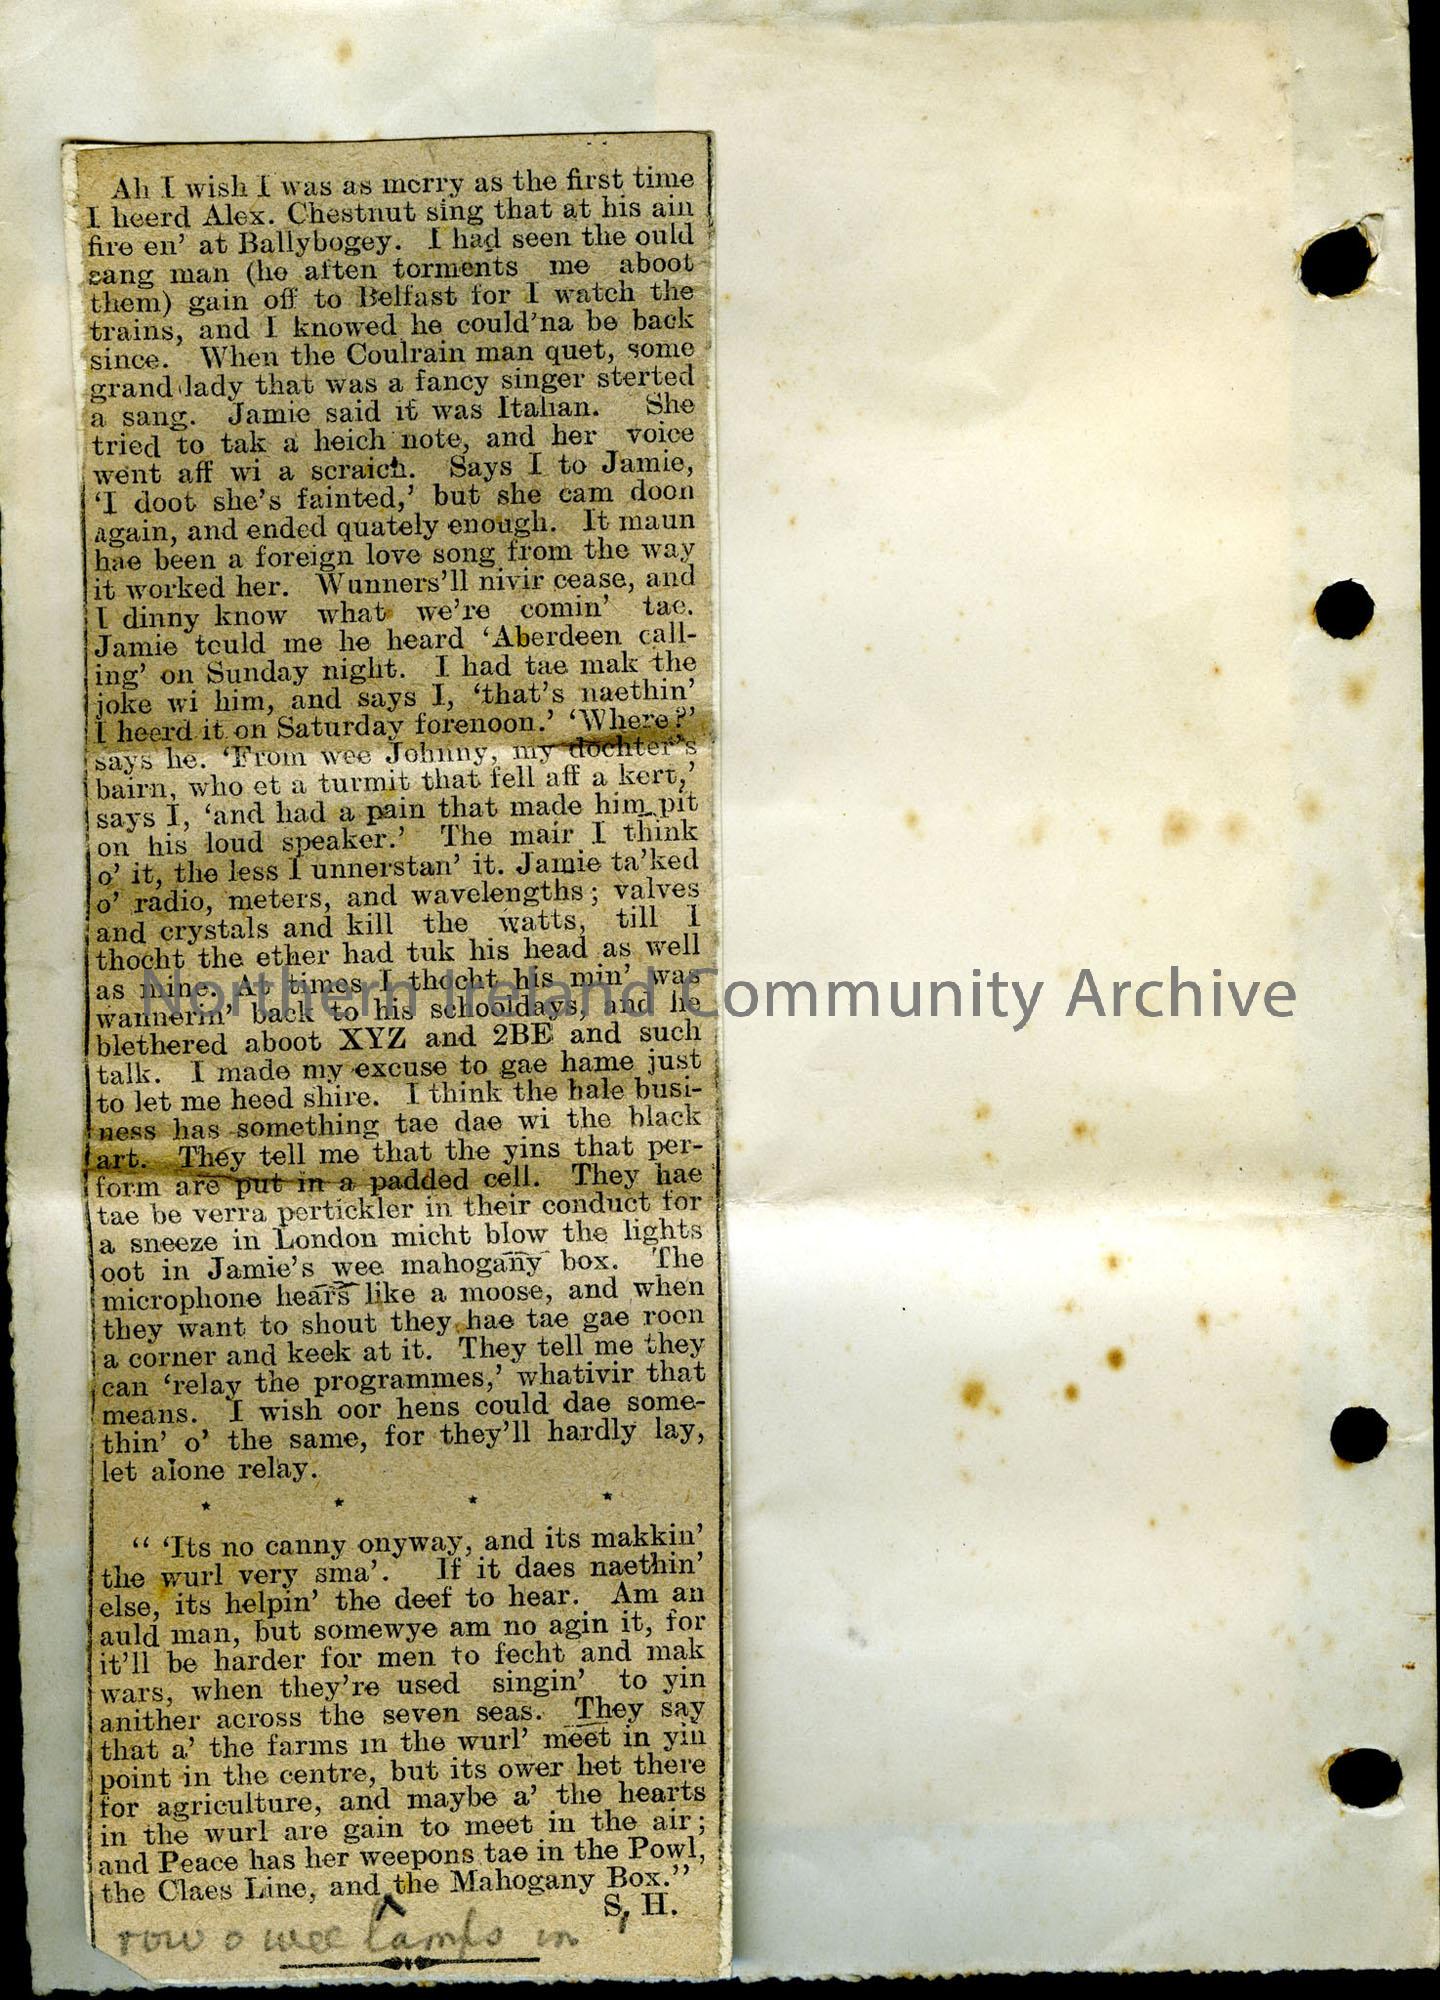 Ah I wish I was as merry as the first time
I heerd Alex. Chestnut sing that at his ain
fire en' at Ballybogey. I had seen the ould
sang man (he aften torments me aboot
them) gain off to Belfast for I watch the
trains, and I knowed he could'na be back
since. When the Coulrain man quet, some
grand lady that was a fancy singer sterted
a sang. Jamie said it was Italian. She
tried to tak a heich note, and her voice
went aff wi a scraich. Says I to Jamie,
'I doot she's fainted,' but she cam doon
again, and ended quately enough. It maun
hae been a foreign love song from the way
it worked her. Wunners'll nivir cease, and
I dinny know what we're comin' tae.
Jamie tould me he heard 'Aberdeen call-
ing' on Sunday night. I had tae mak the
joke wi him, and says I, 'that's naethin'
I heerd it on Saturday forenoon.' 'Where?'
says he. 'From wee Johnny, my dochter's
bairn, who et a turmit that fell aff a kert,'
says I, 'and had a pain that made him pit
on his loud speaker.' The mair I think
o' it, the less I unnerstan' it. Jamie ta'ked
o' radio, meters, and wavelengths; valves
and crystals and kill the watts, till I
thocht the ether had tuk his head as well
as mine. At times I thocht his min' was
wannerin' back to his schooldays, and he
blethered aboot XYZ and 2BE and such
talk. I made my excuse to gae hame just
to let me heed shire. I think the hale busi-
ness has something tae dae wi the black
art. They tell me that the yins that per-
form are put in a padded cell. They hae
tae be verra pertickler in their conduct for
a sneeze in London micht blow the lights
oot in Jamie's wee mahogany box. The
microphone hears like a moose, and when
they want to shout they hae tae gae roon
a corner and keek at it. They tell me they
can 'relay the programmes,' whativir that
means. I wish oor hens could dae some-
thin' o' the same, for they'll hardly lay,
let alone relay.
* * * *
" 'Its no canny onyway, and its makkin'
the wurl very sma'. If it daes naethin'
else, its helpin' the deef to hear. Am an
auld man, but somewye am no agin it, for
it'll be harder for men to fecht and mak
wars, when they're used singin' to yin
anither across the seven seas. They say
that a' the farms in the wurl' meet in yin
point in the centre, but its ower het there
for agriculture, and maybe a' the hearts
in the wurl are gain to meet in the air;
and Peace has her weepons tae in the Powl,
the Claes Line, and the Mahogany Box."
S. H.
row o wee lamps in
Northern Ireland Community Archive